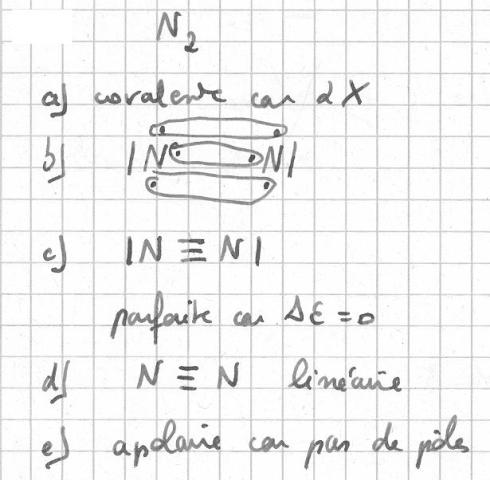 N₂
a) covalente car 2 X
b) |N N|
c) |N ≡ N|
parfaite car Δε = 0
d) N ≡ N linéaire
e) apolaire car pas de pôles